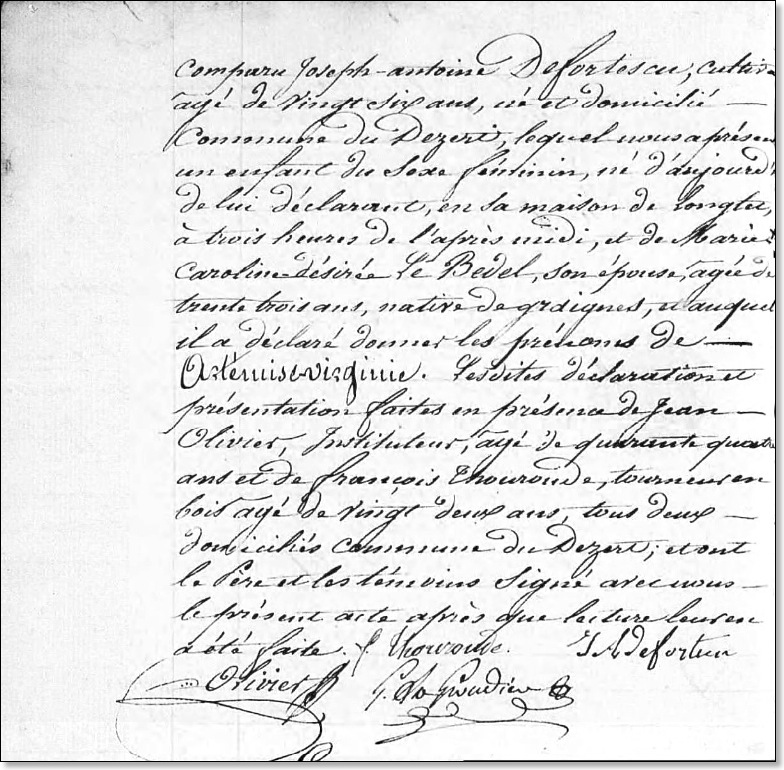 comparu Joseph-antoine Defortescu, cultiv
agé de vingt six ans, né et domicilié —
Commune du Dezert, lequel nous a présen
un enfant du Sexe féminin, né d'aujourd'
de lui déclarant, en sa maison de Longlet,
à trois heures de l'après midi, et de Marie
Caroline-désirée Le Bedel, son épouse, agée de
trente trois ans, native de graignes, et auquel
il a déclaré donner les prénoms de —
Artémise-virginie. Lesdites déclaration et
présentation faites en présence de Jean —
Olivier, Instituteur, agé de quarante quatre
ans et de françois Thouroude, tourneur en
bois agé de vingt deux ans, tous deux —
domiciliés commune du Dezert; et ont
le Père et les témoins Signé avec nous —
le présent acte après que lecture leur en
a été faite. f. Thouroude. J A defortescu
Olivier